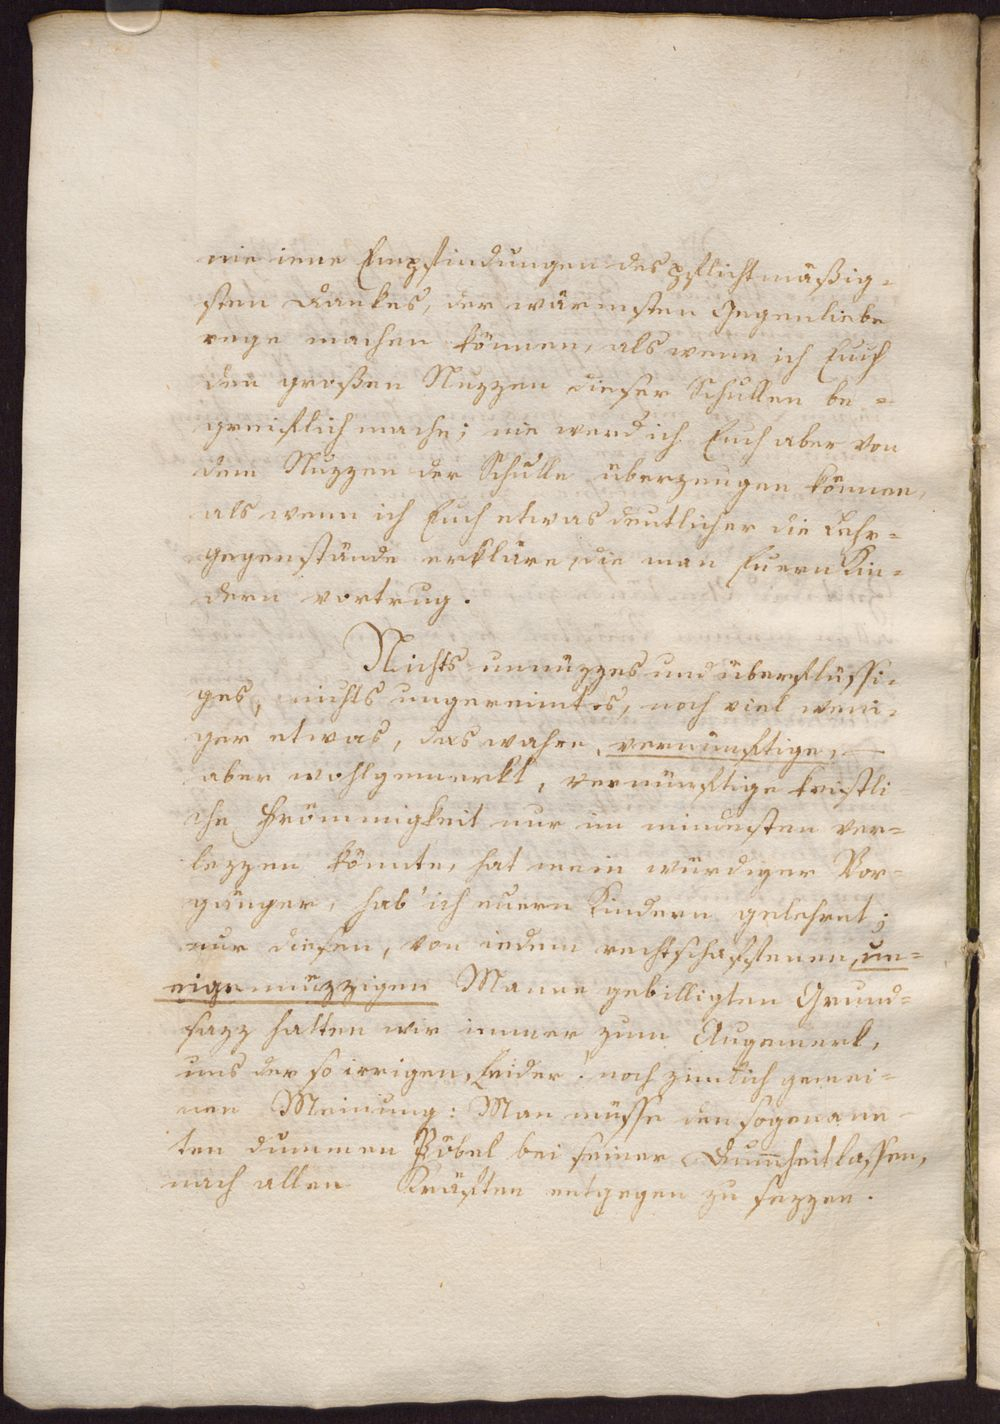 nie iene Empfindungen des pflichtmäßig-
sten Dankes, der wärmsten Gegenliebe
rege machen können, als wenn ich Euch
den großen Nuzzen dieser Schullen be-
greiflich mache; nie werd ich Euch aber von
dem Nuzzen der Schulle überzeugen können,
als wenn ich Euch etwas deutlicher die Lehr-
gegenstände erkläre, die man Euern Kin-
dern vortrug.
Nichts unnüzzes und überflüssi-
ges, nichts ungereimtes, noch viel weni-
ger etwas, das wahre, vernünftige, —
aber wohlgemerkt, vernünftige kristli-
che Frömmigkeit nur im mindesten ver-
lezzen könnte, hat mein würdiger Vor-
gänger, hab' ich euern Kindern gelehret;
nur diesen, von iedem rechtschaffenen, un-
eigennüzzigen Manne gebilligten Grund-
sazz hatten wir immer zum Augenmerk,
uns der so irrigen, Leider! noch zimlich gemei-
nen Meinung: Man müsse den sogenann-
ten dummen Pöbel bei seiner Dum̅heit lassen,
nach allen Kräften entgegen zu sezzen.